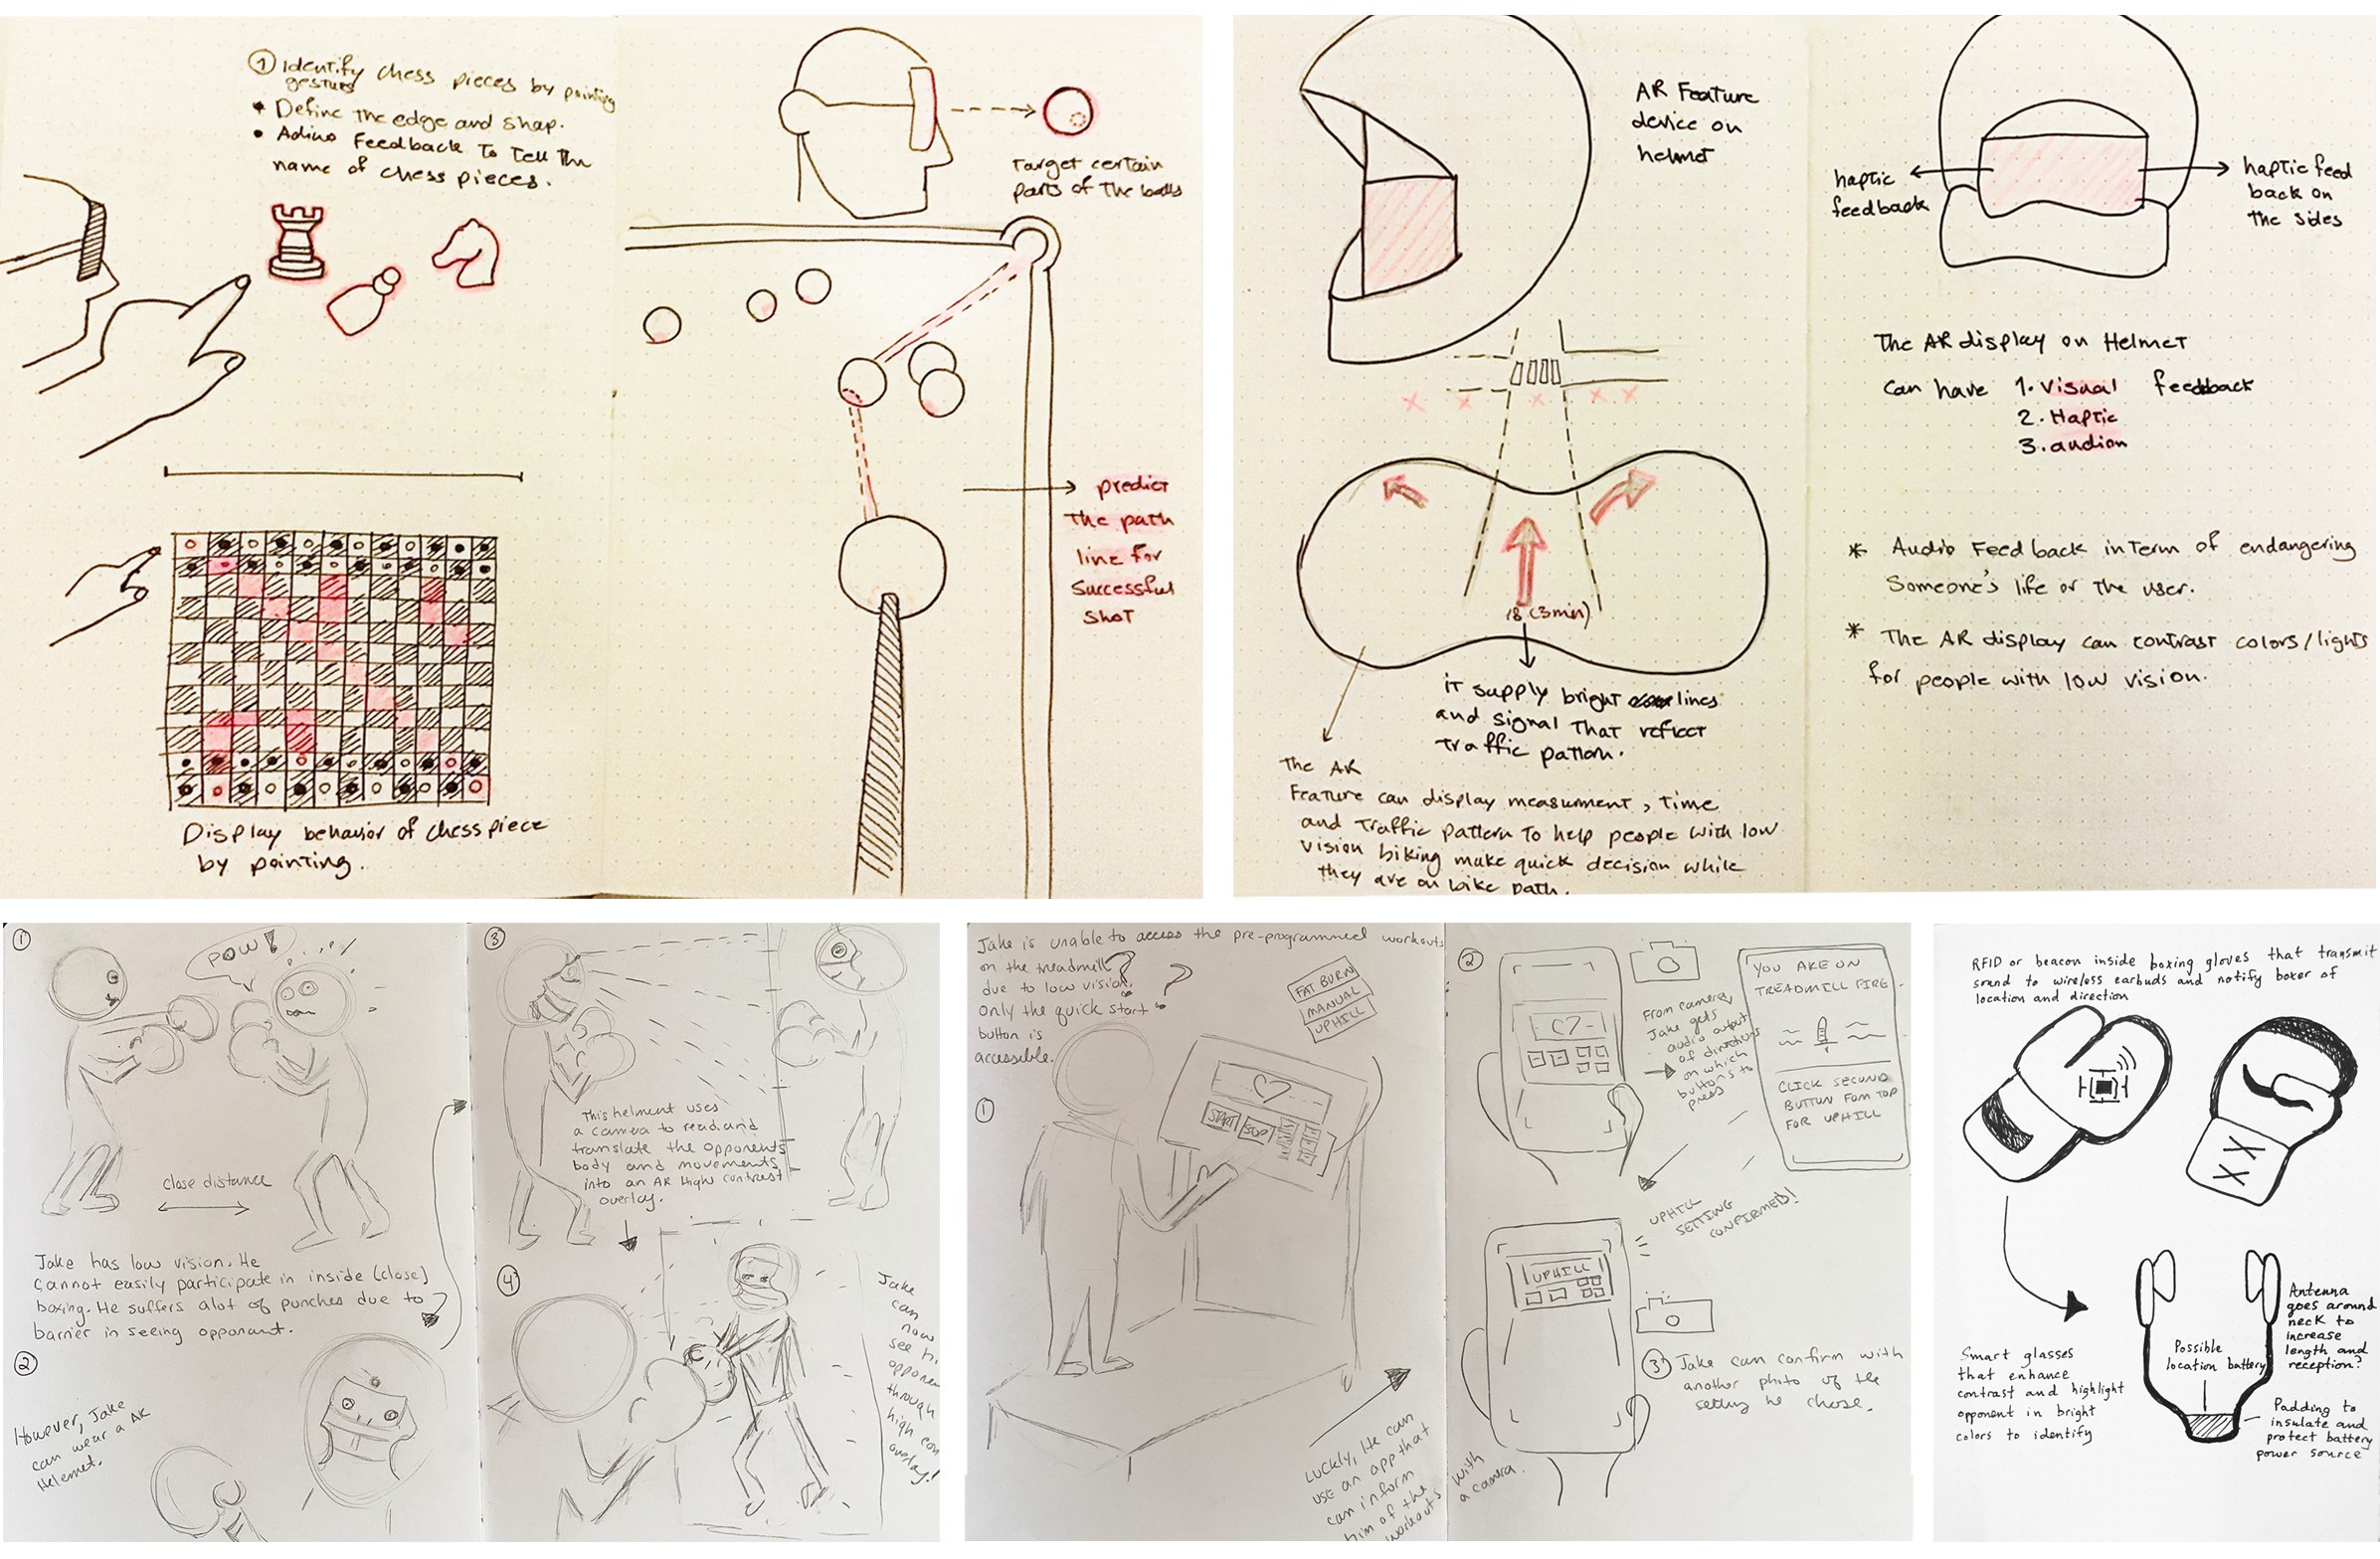 ① Identify chess pieces by pointing
gesturs
• Define the edge and shap.
• Adiuo Feedback To Tell The
name of chess pieces.
Display behavior of chess piece
by pointing.
Target certain
parts of The balls
predict
The path
line for
successful
shot
AR Feature
device on
helmet
haptic
feedback
haptic feed
back on
The sides
The AR display on Helmet
can have 1. Visual feedback
2. Haptic
3. audion
* Audio Feedback in Term of endangering
Someone's life or The user.
* The AR display can contrast colors/lights
for people with low vision.
18 (3min)
it supply bright lines
and signal That reflect
Traffic pattern.
The AR
Feature can display measurment, Time
and Traffic pattern To help people with low
vision biking make quick decision while
they are on bike path.
①
POW!
close distance
Jake has low vision. He
cannot easily participate in inside (close)
boxing. He suffers alot of punches due to
barrier in seeing opponant.
②
However, Jake
can wear a AR
Helemet.
③
This helment uses
a camera to read and
translate the opponents
body and movements
into an AR High contrast
overlay.
④
Jake
can
now
see hi
oppone
through
high con
overlay!
Jake is unable to access the pre-programmed workouts
on the treadmill
due to low vision.
only the quick start
button is
accessible.
? ?
FAT BURN
MANUAL
UPHILL
①
START
STOP
Luckly, He can
use an app that
can inform
him of the
workouts
with
a camera.
②
From camera,
Jake gets
audio output
of directions
on which
buttons to
press
YOU ARE ON
TREADMILL FIRE.
CLICK SECOND
BUTTON FOM TOP
FOR UPHILL
UPHILL
SETTING
CONFIRMED!
UPHILL
③ Jake can confirm with
another photo of the
setting he chose.
RFID or beacon inside boxing gloves that transmit
sound to wireless earbuds and notify boxer of
location and direction
XX
Antenna
goes around
neck to
increase
length and
reception?
Possible
location battery
Smart glasses
that enhance
contrast and highlight
opponent in bright
colors to identify
Padding to
insulate and
protect battery
power source